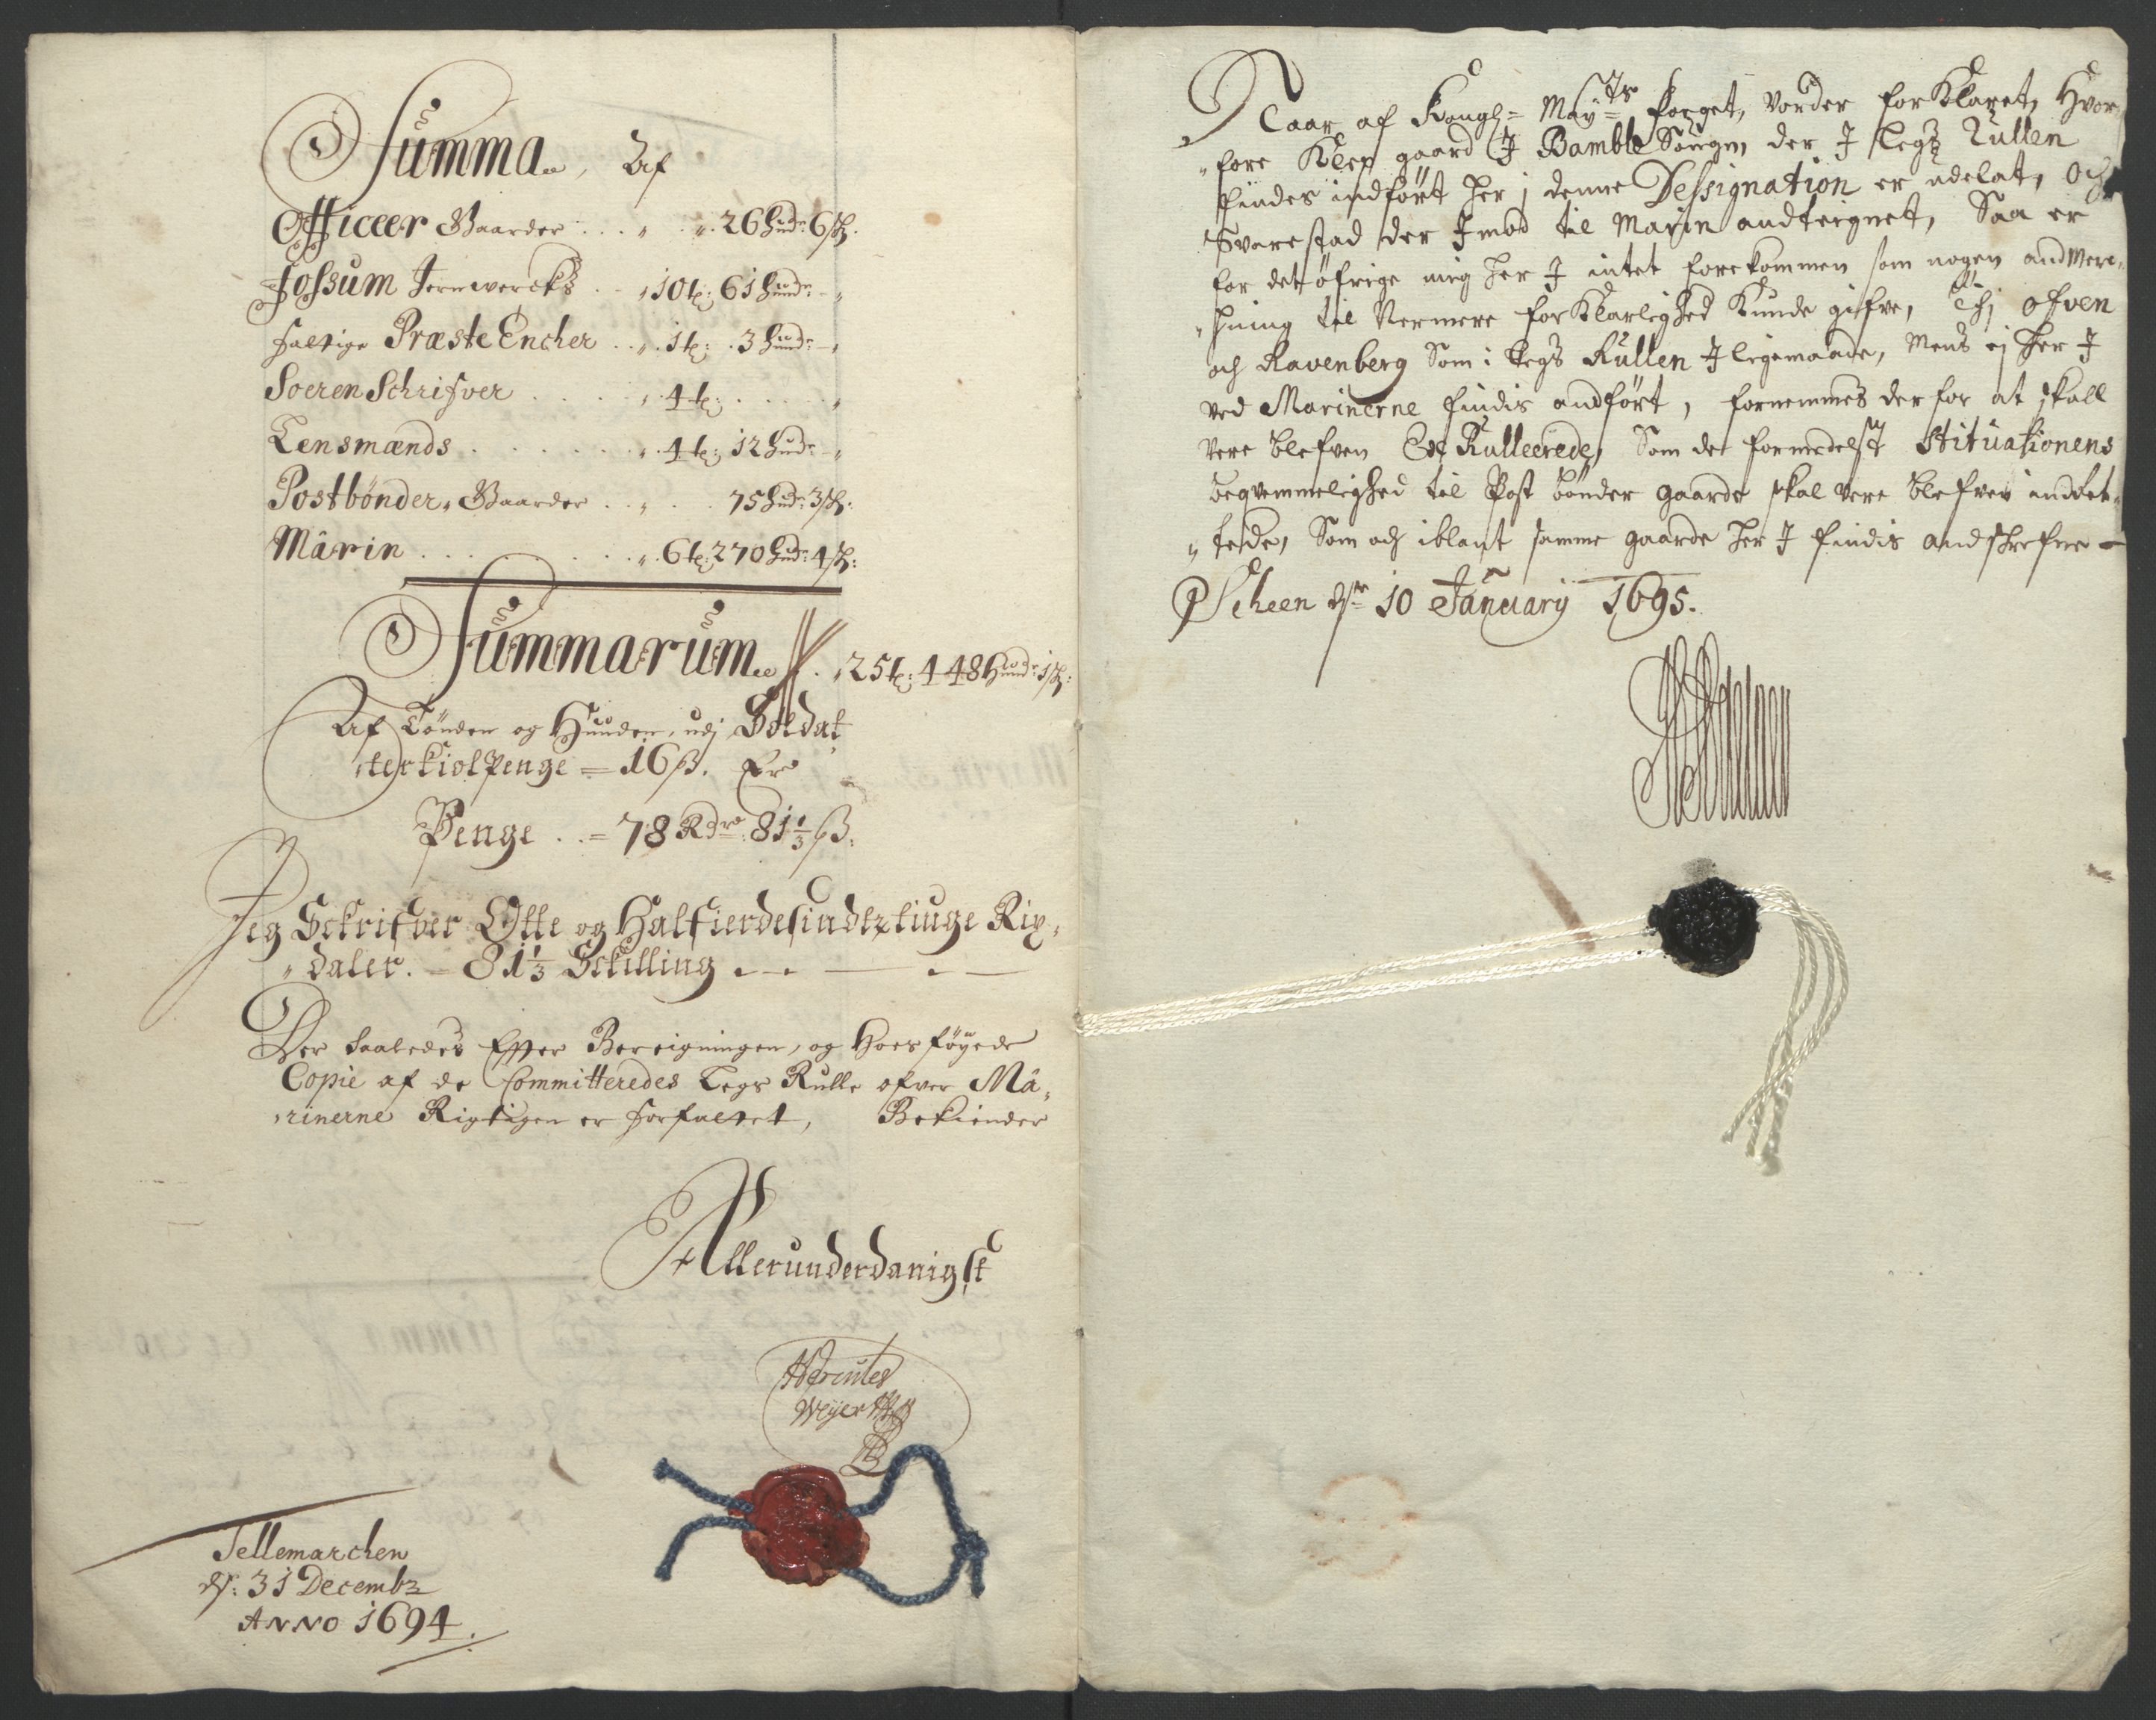 Summa. Af
Officeer Gaarder . . . 26 Hudr 6 sk.
Fossum Jernwercks . . 10 tr: 61 Hudr -
faltige Præste Encher . . 1 tr: 3 Hudr -
Soeren Schrifver . . . . 4 tr: . . . .
Lensmænds . . . . . . 4 tr: 12 Hudr -
Postbönder, Gaarder . . . 75 Hudr 3 sk:
Mârin . . . . . . 6 tr: 270 Hudr 4 sk:
Summarum . 25 tr: 448 Hudr 1 sk:
Af Tönden og Huuden, udj Soldat
terkiolPenge = 16 ß. Er
Penge . . = 78 Rdr 81 1/3 ß.
Jeg Schrifver Otte og Halfierdesindtztiuge Rix,
daler. = 81 1/3 Schilling . - . — . —
Der saaledes Effter Beregningen, og Hoesföyede
Copie af de Committeredes Legs Rulle ofver Mâ,
rinerne Rigtigen er forfattet, Bekiender
Allerunderdanigst
Hercules
Weyer
Tellemarchen
ds: 31 Decembr
ANNO 1694.
af Kongl= May=ts vorder forKlaret, Hvor,
fore Klep gaard J Bamble Sougn, der J Legs Rullen
findes indfört her j denne Dessignation er udelat, Och
Svarestad der Jmod til Marin andteignet, Saa er
for det öfrige mig her J intet forekommen som nogen andmerc,
hning til Nermere forKlarlighed Kunde gifve, Thj ofven
och Ravenberg Som i Legs Rullen J ligemaade, Mens ej her J
ved Marinerne findis andfört, fornemmes derfor at skall
vere blefven Rulleerede, Som de formedelst Stituasionens
beqvemmelighed til Post bönder gaarde skal vere blefven indret,
tede, Som och iblant samme gaarde her J findis andskrefne -
Scheen ds 10 January 1695.